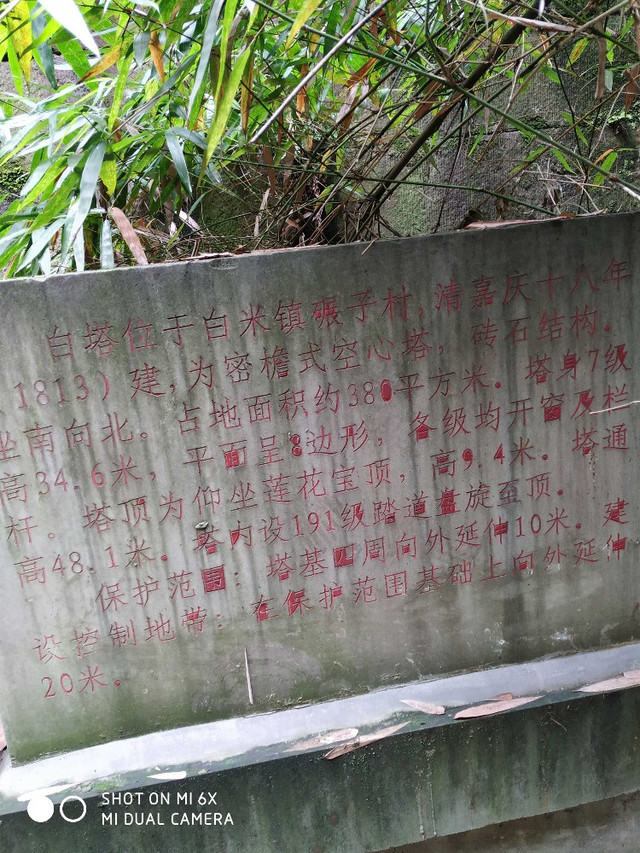 白塔位于白米镇碾子村，清嘉庆十八年
（1813）建，为密檐式空心塔，砖石结构。
坐南向北。占地面积约380平方米。塔身7级
高34.6米，平面呈8边形，各级均开窗及栏
杆。塔顶为仰坐莲花宝顶，高9.4米。塔通
高48.1米。塔内设191级踏道盘旋至顶。
保护范围：塔基四周向外延伸10米。建
设控制地带：在保护范围基础上向外延伸
20米。
SHOT ON MI 6X
MI DUAL CAMERA